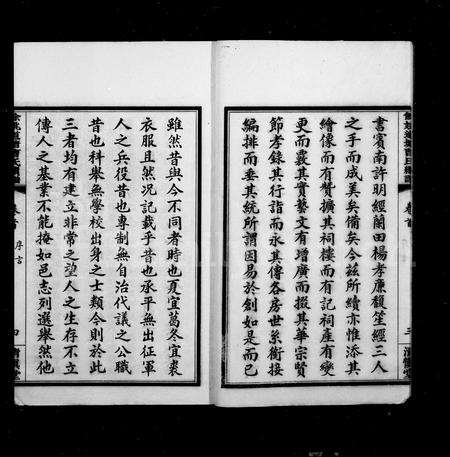 書賓南許明經蘭田楊孝廉馥笙經三人
之手而成美矣備矣今兹所續亦惟添其
繪像而有贊擴其祠樓而有記祠產有變
更而覈其實藝文有增廣而掇其華宗賢
節孝錄其行誼而永其傳各房世系銜接
編排而垂其統所謂因易於創如是而已
卷首
三
雖然昔與今不同者時也夏宜葛冬宜裘
衣服且然况記載乎昔也承平無出征軍
人之兵役昔也專制無自治代議之公職
昔也科舉無學校出身之士類今則於此
三者均有建立非常之望人之生存不立
傳人之基業不能掩如邑志列選舉然他
卷首
序言
四